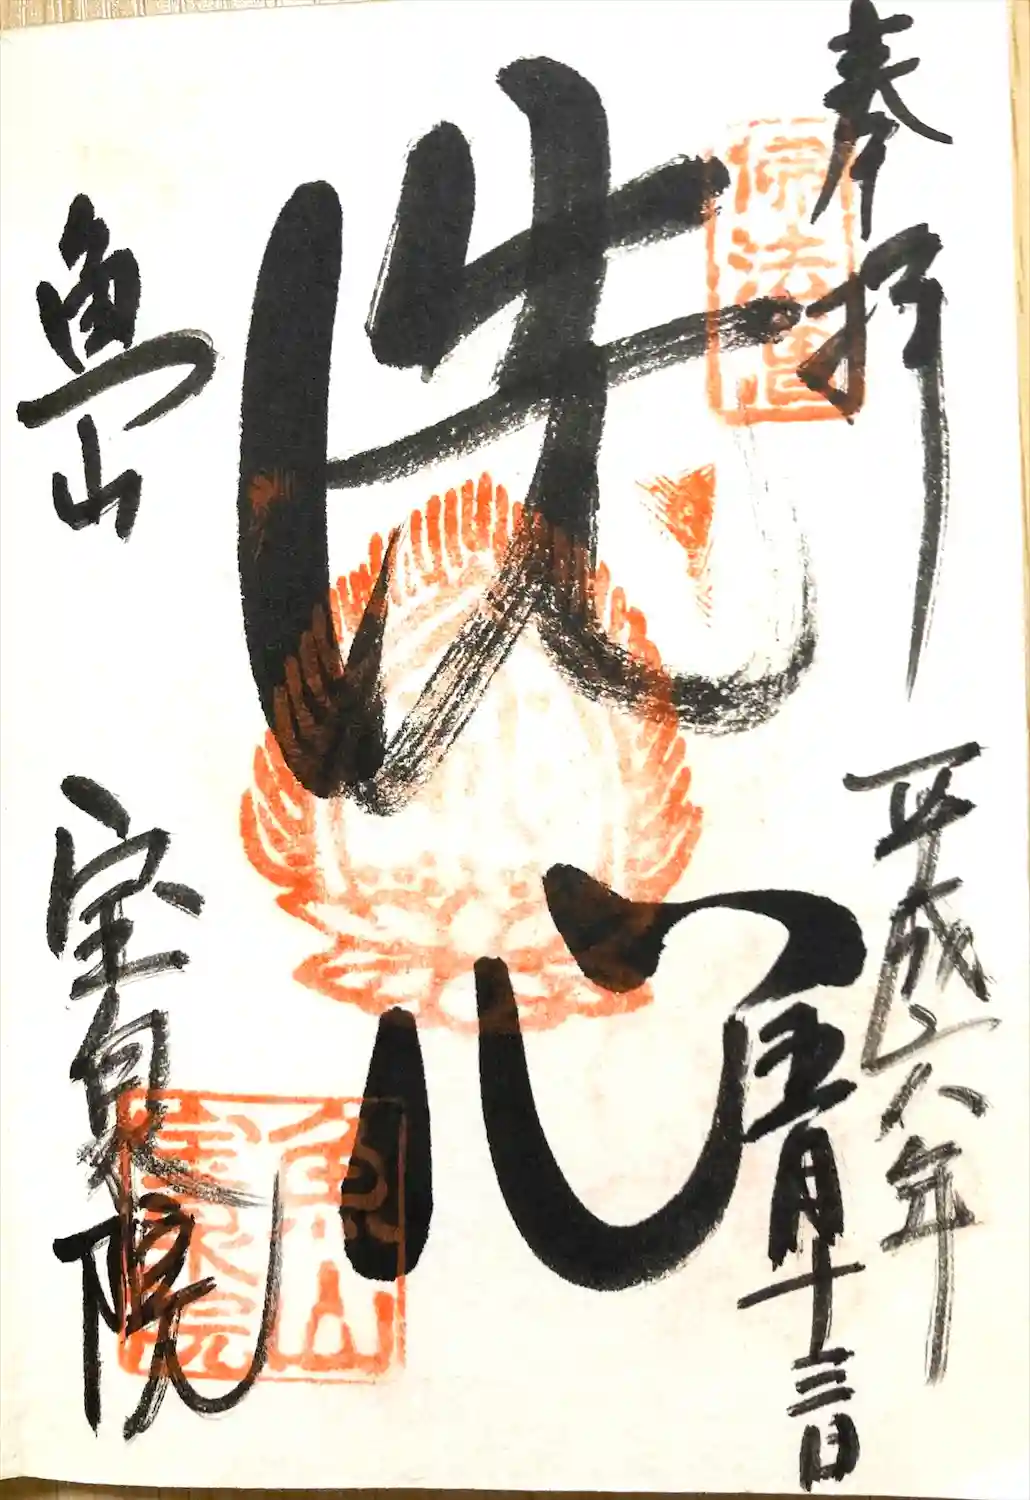 奉拝
平成二六年
五月十三日
洗心
魚山
宝泉院
魚山
宝泉院